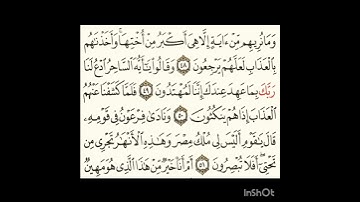 وَمَا نُرِيهِم مِّنْ ءَايَةٍ إِلَّا هِىَ أَكْبَرُ مِنْ أُخْتِهَا ۖ وَأَخَذْنَٰهُم
بِٱلْعَذَابِ لَعَلَّهُمْ يَرْجِعُونَ ٤٨ وَقَالُوا۟ يَٰٓأَيُّهَ ٱلسَّاحِرُ ٱدْعُ لَنَا
رَبَّكَ بِمَا عَهِدَ عِندَكَ إِنَّنَا لَمُهْتَدُونَ ٤٩ فَلَمَّا كَشَفْنَا عَنْهُمُ
ٱلْعَذَابَ إِذَا هُمْ يَنكُثُونَ ٥٠ وَنَادَىٰ فِرْعَوْنُ فِى قَوْمِهِۦ
قَالَ يَٰقَوْمِ أَلَيْسَ لِى مُلْكُ مِصْرَ وَهَٰذِهِ ٱلْأَنْهَٰرُ تَجْرِى مِن
تَحْتِىٓ ۖ أَفَلَا تُبْصِرُونَ ٥١ أَمْ أَنَا۠ خَيْرٌ مِّنْ هَٰذَا ٱلَّذِى هُوَ مَهِينٌ
InShOt